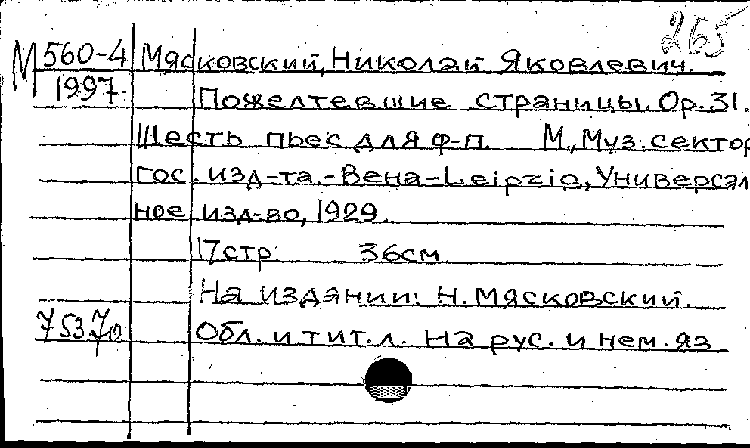 265
М 560-4 Мясковский, Николай Яковлевич.
1997. Пожелтевшие страницы. Ор. 31.
Шесть пьес для ф-п. М., Муз. сектор
гос. изд-та.-Вена-Leipzig, Универсаль
ное изд-во, 1929.
17стр 36см
На издании: Н. Мясковский.
Обл. и тит. л. на рус. и нем. яз